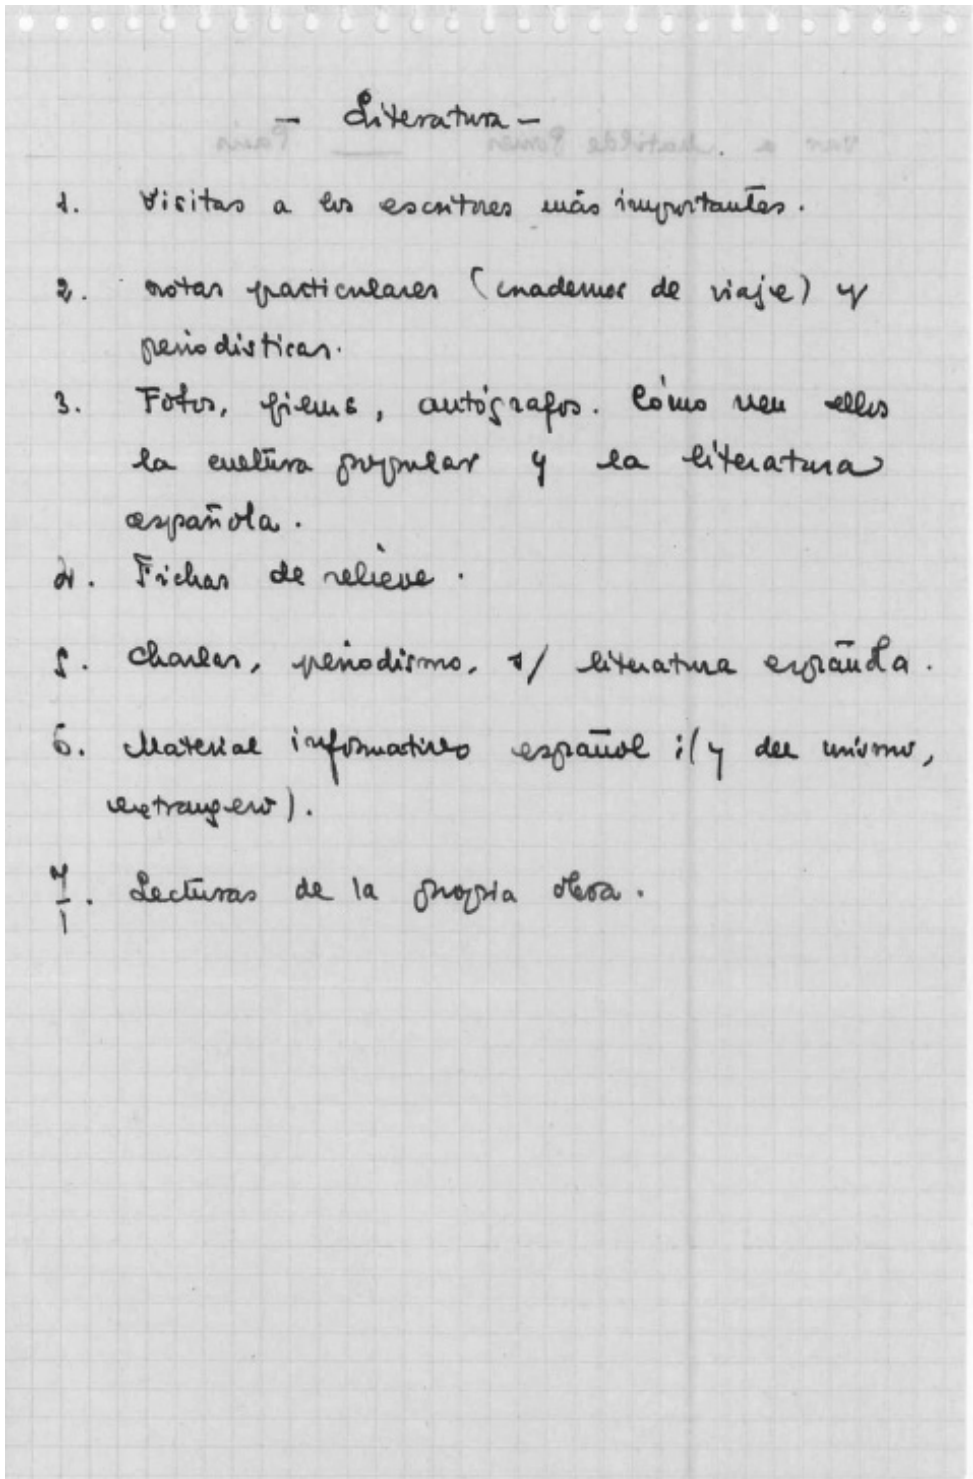 - Literatura -
1. Visitas a los escritores más importantes.
2. notas particulares (cuadernos de viaje) y
periodisticas.
3. Fotos, films, autógrafos. Cómo ven ellos
la cultura popular y la literatura
española.
4. Fichas de relieve.
5. Charlas, periodismo, s/ literatura española.
6. Material informativo español ;(y del mismo,
extrangero).
7. Lecturas de la propia obra.